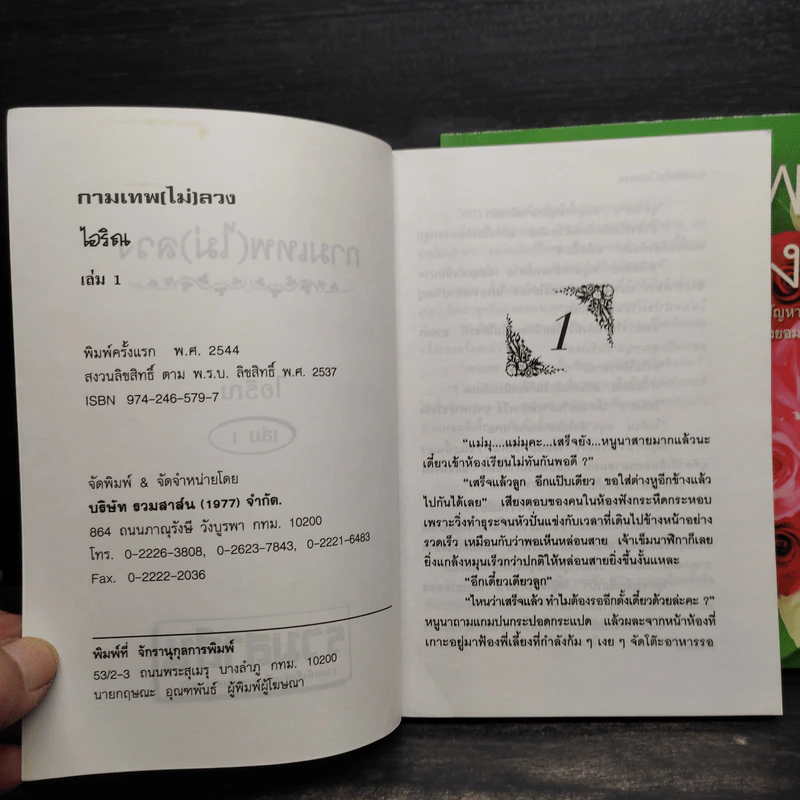 กามเทพ(ไม่)ลวง
ไอริณ
เล่ม 1
พิมพ์ครั้งแรก พ.ศ. 2544
สงวนลิขสิทธิ์ ตาม พ.ร.บ. ลิขสิทธิ์ พ.ศ. 2537
ISBN 974-246-579-7
จัดพิมพ์ & จัดจำหน่ายโดย
บริษัท รวมสาส์น (1977) จำกัด.
864 ถนนภาณุรังษี วังบูรพา กทม. 10200
โทร. 0-2226-3808, 0-2623-7843, 0-2221-6483
Fax. 0-2222-2036
พิมพ์ที่ จักรานุกูลการพิมพ์
53/2-3 ถนนพระสุเมรุ บางลำภู กทม. 10200
นายกฤษณะ อุณฑพันธ์ ผู้พิมพ์ผู้โฆษณา
1
"แม่มุ....แม่มุคะ...เสร็จยัง...หนูนาสายมากแล้วนะ
เดี๋ยวเข้าห้องเรียนไม่ทันกันพอดี ?"
"เสร็จแล้วลูก อีกแป๊บเดียว ขอใส่ต่างหูอีกข้างแล้ว
ไปกันได้เลย" เสียงตอบของคนในห้องฟังกระหืดกระหอบ
เพราะวิ่งทำธุระจนหัวปั่นแข่งกับเวลาที่เดินไปข้างหน้าอย่าง
รวดเร็ว เหมือนกับว่าพอเห็นหล่อนสาย เจ้าเข็มนาฬิกาก็เลย
ยิ่งแกล้งหมุนเร็วกว่าปกติให้หล่อนสายยิ่งขึ้นงั้นแหละ
"อีกเดี๋ยวเดียวลูก"
"ไหนว่าเสร็จแล้ว ทำไมต้องรออีกตั้งเดี๋ยวด้วยล่ะคะ ?"
หนูนาถามแกมบ่นกระปอดกระแปด แล้วผละจากหน้าห้องที่
เกาะอยู่มาฟ้องพี่เลี้ยงที่กำลังก้ม ๆ เงย ๆ จัดโต๊ะอาหารรอ